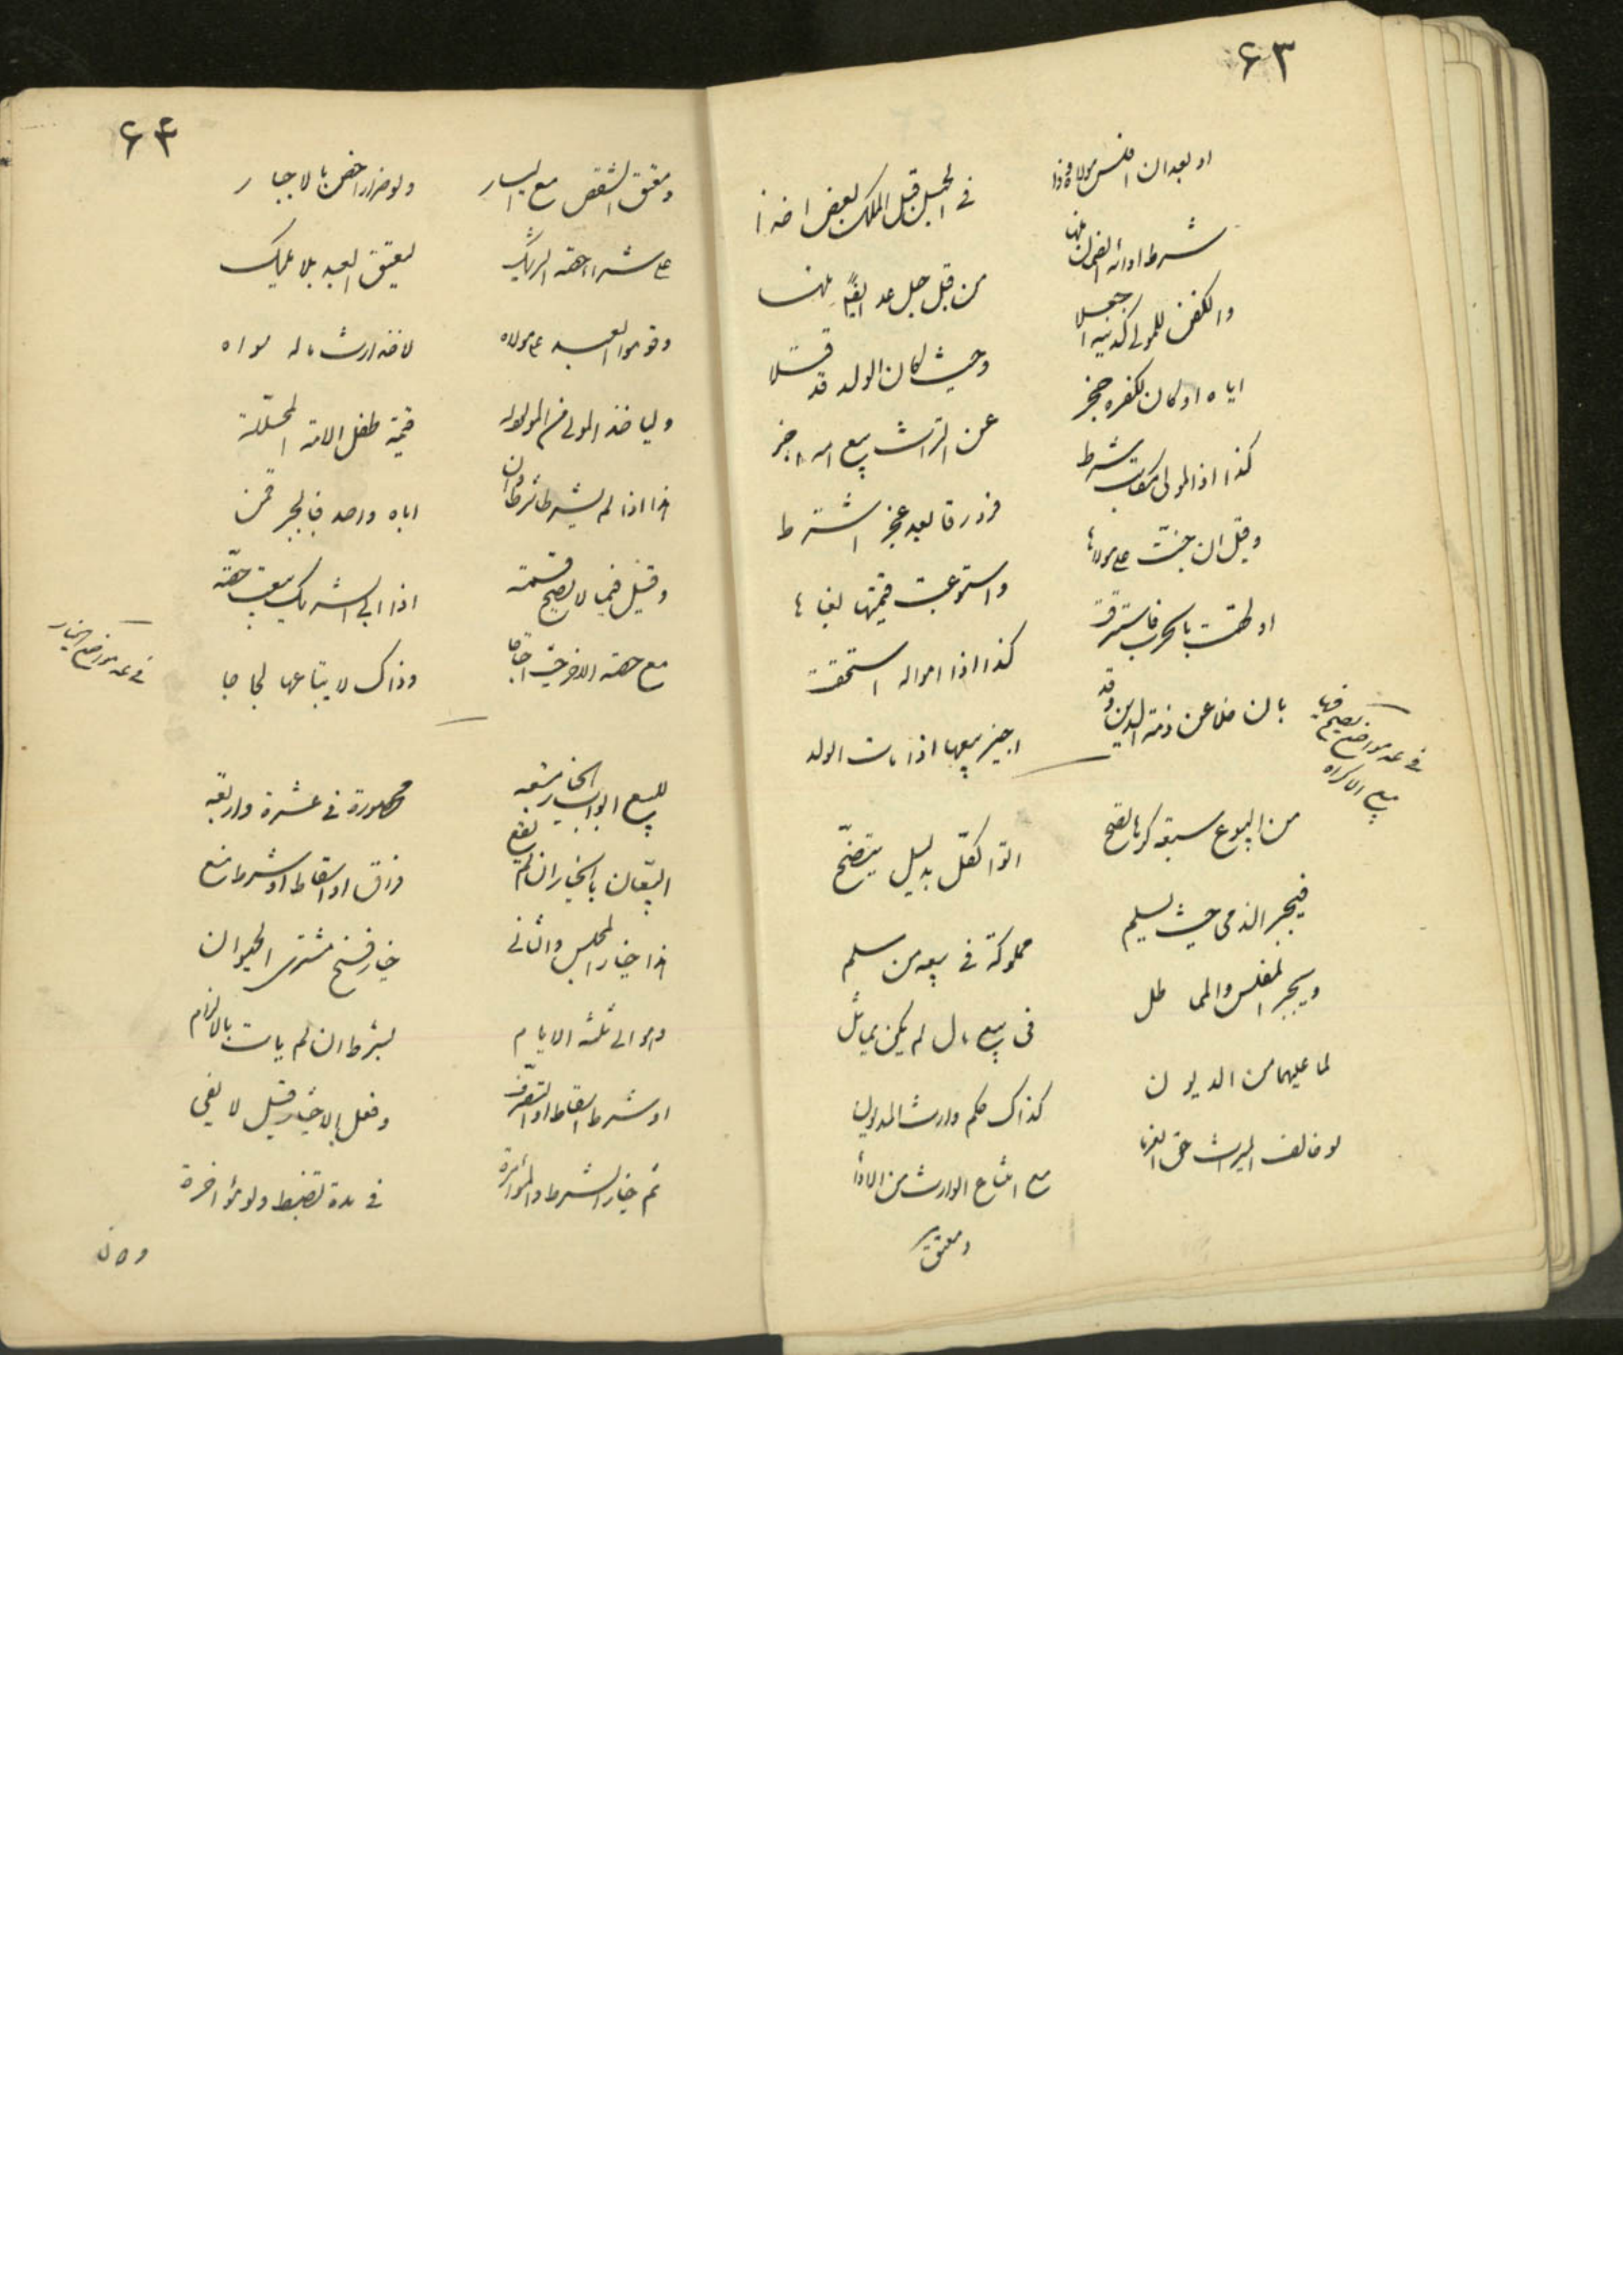 ٦٣
او بعد ان افلس مولاه وذا في الحبل قبل الملك بعض اخذا
شرط ادائه الضمان منها من قبل حبل عد ايضا منها
والكفن للمولى كدينه اجعلا وحيث كان الولد قد قتلا
اياه او كان لكفره حجز عن التراث بيع امه اجز
كذا اذا المولى مكاتب شرط فرد رقا بعد عجز اشترط
وقيل ان جنت على مولاها واستوعبت قيمتها لغاها
او لحقت بالحرب فاسترقت كذا اذا امواله استحقت
بان خلا عن ذمة الدين وقد اجيز بيعها اذا مات الولد
في عد مواضع يصح فيها بيع الاكراه
من البيوع سبعة كرها تصح اتوا لكل بدليل يتضح
فيجبر الذمي حيث يسلم مملوكه في بيعه من مسلم
ويجبر المفلس والمماطل في بيع مال لم يكن يماثل
لما عليهما من الديون كذاك حكم وارث المديون
لو خالف الميراث حق الغرما مع امتناع الوارث من الادا
ومعتق
٦٤
ومعتق الشقص مع اليسار ولو ضرارا خص بالاجبار
على شرا حصة الشريك ليعتق العبد بلا تمليك
وقوموا العبد على مولاه لاخذ ارث ماله سواه
وليأخذ المولى من المولود له قيمة طفل الامة المحللة
هذا اذا لم يشترط شرطا وان اباه واحد فالجبر قمن
وقيل فيما لا يصح قسمته اذا ابى الشريك بيعت حصته
مع حصة الاخر حيث احتاجا وذاك لا يبتاعها لجاجا
في عد مواضع الخيار
للبيع ابواب الخيار مشبعه محصورة في عشرة واربعه
البيعان بالخيار ان لم يقع فراق او اسقاط او شرط منع
هذا خيار المجلس والثاني خيار فسخ مشتري الحيوان
وهو الى ثلثة الايام بشرط ان لم يات بالالزام
او شرط اسقاط او التصرف وفعل الاختيار قيل لا يفي
ثم خيار الشرط والمؤامرة في مدة تضبط ولو مؤاخرة